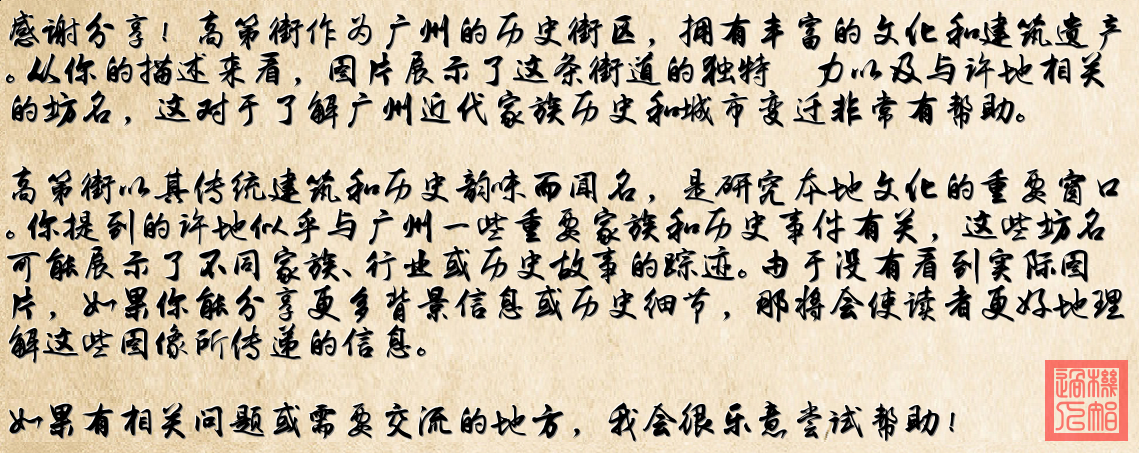 感谢分享！高第街作为广州的历史街区，拥有丰富的文化和建筑遗产
。从你的描述来看，图片展示了这条街道的独特 力以及与许地相关
的坊名，这对于了解广州近代家族历史和城市变迁非常有帮助。
高第街以其传统建筑和历史韵味而闻名，是研究本地文化的重要窗口
。你提到的许地似乎与广州一些重要家族和历史事件有关，这些坊名
可能展示了不同家族、行业或历史故事的踪迹。由于没有看到实际图
片，如果你能分享更多背景信息或历史细节，那将会使读者更好地理
解这些图像所传递的信息。
如果有相关问题或需要交流的地方，我会很乐意尝试帮助！